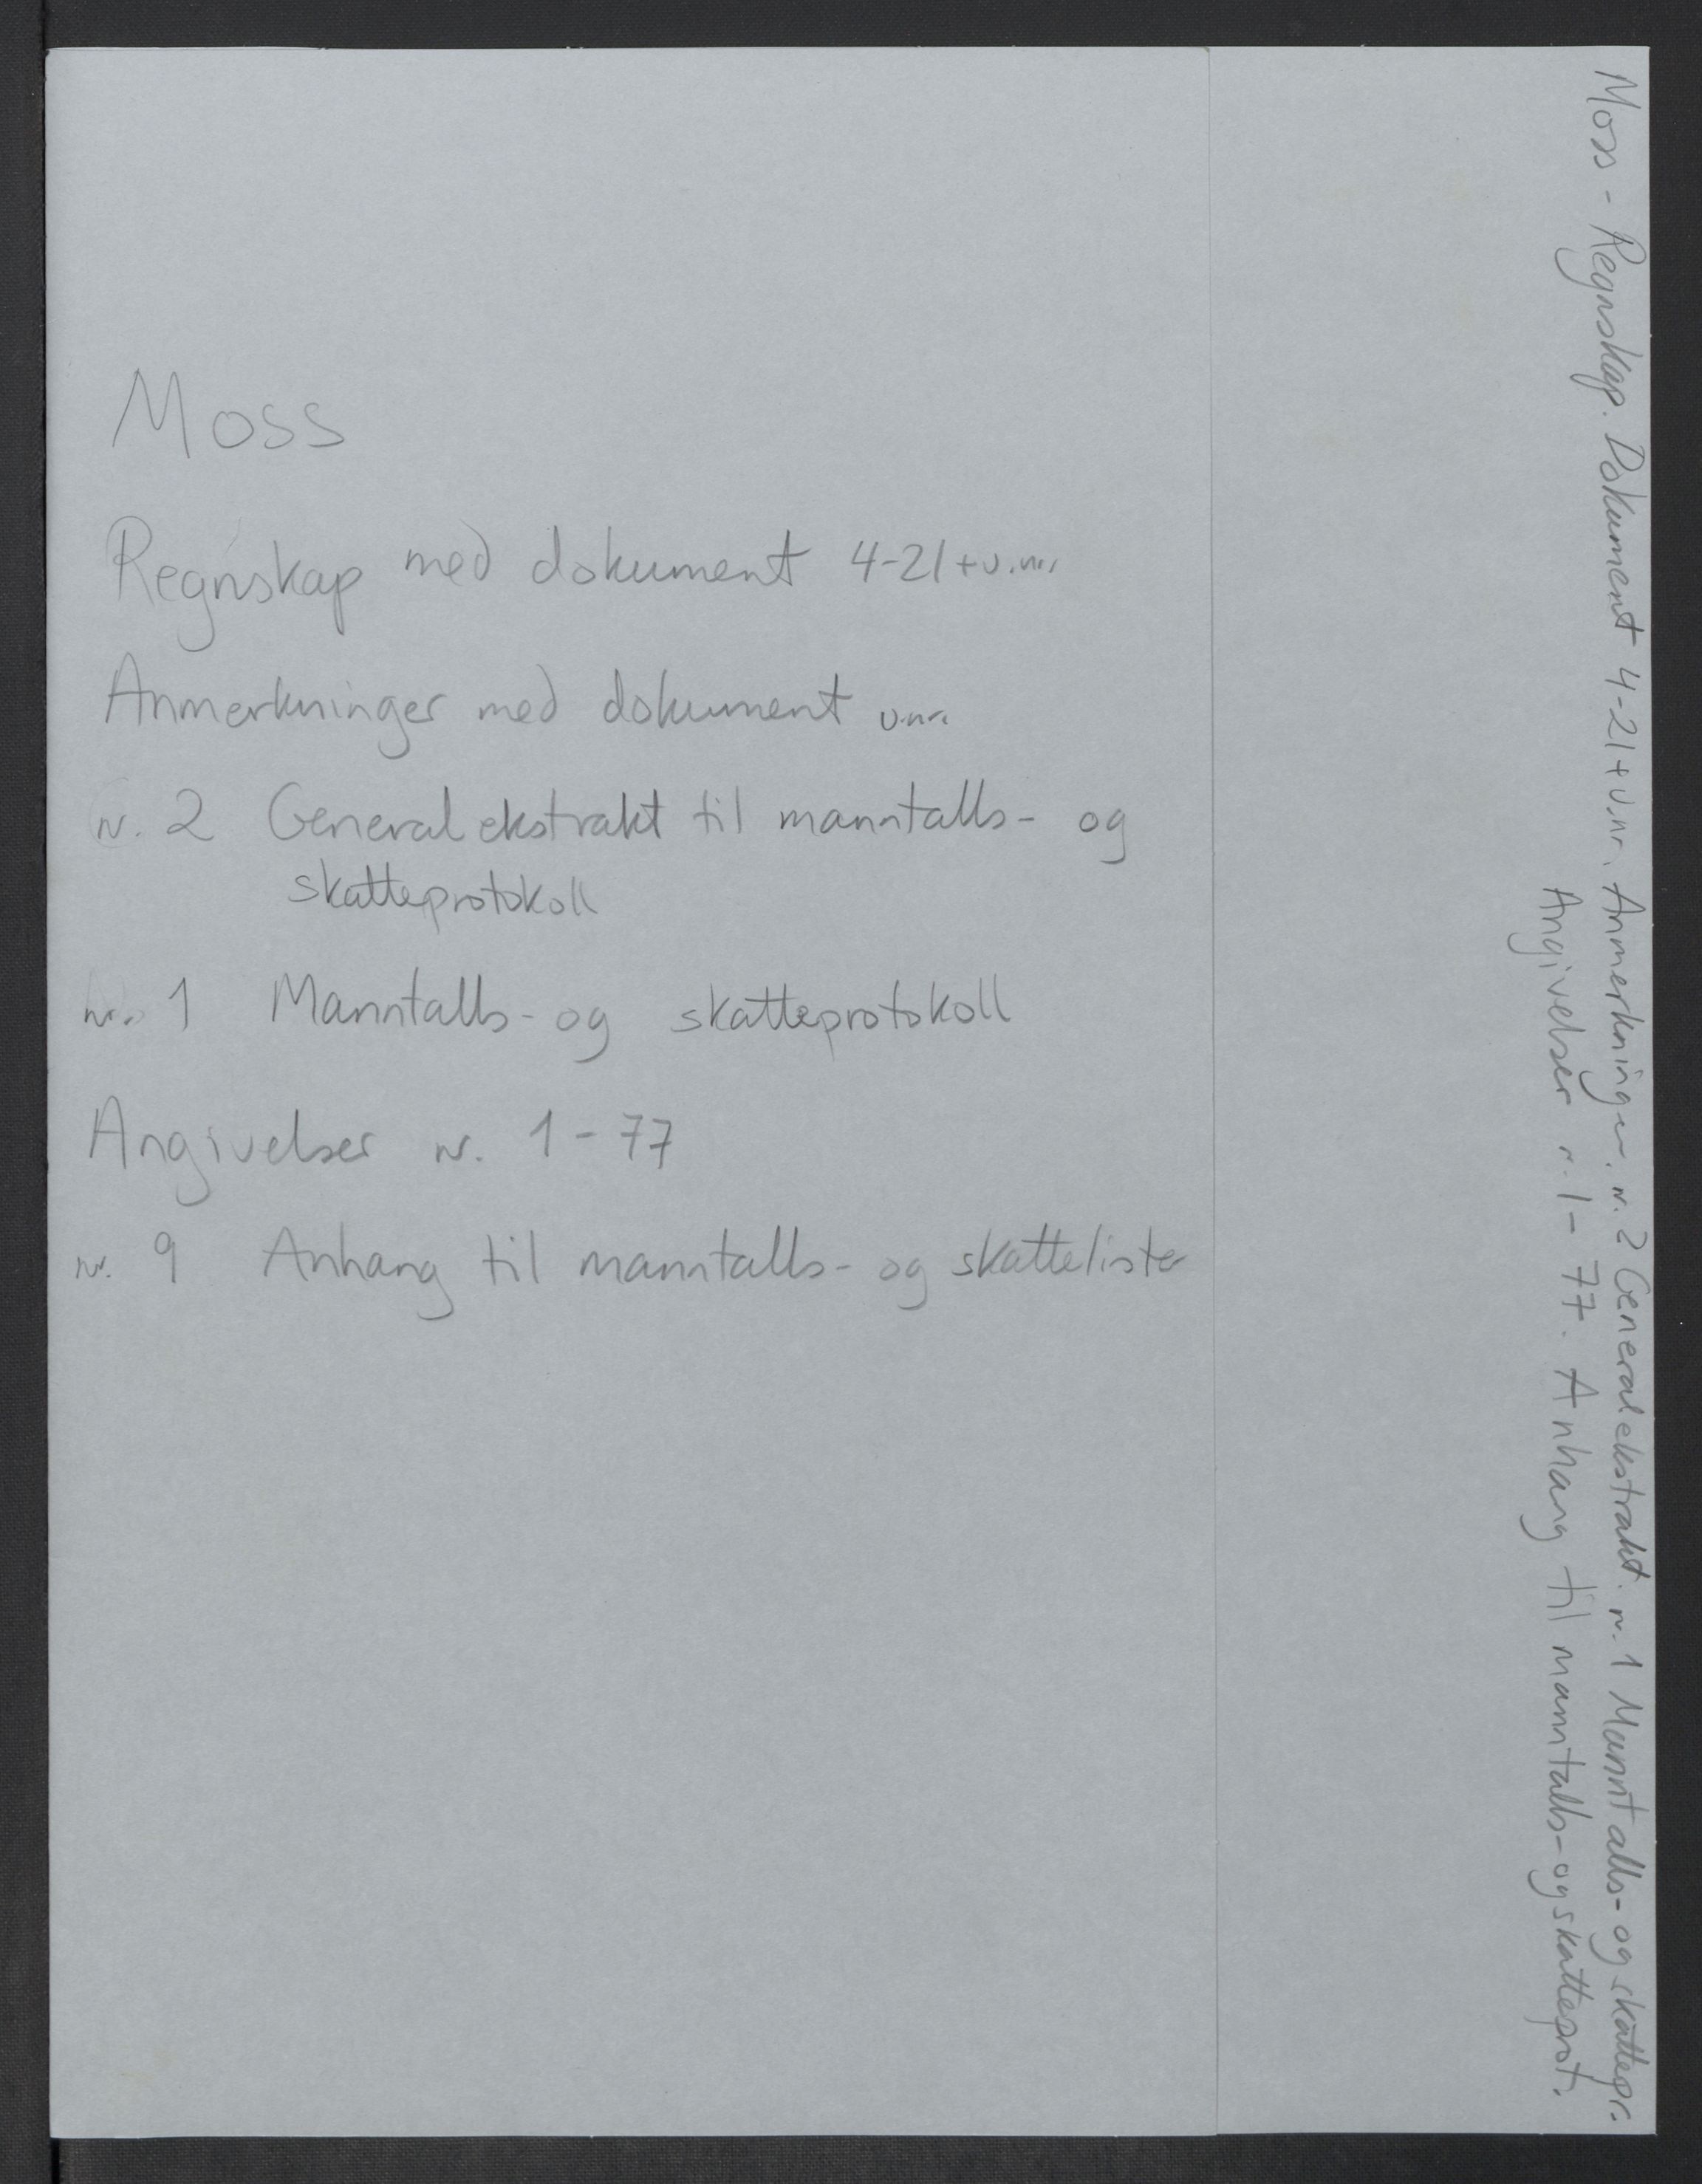 Moss
Regnskap med dokument 4-21+u.nr.
Anmerkninger med dokument u.nr.
nr. 2 Generalekstrakt til manntalls- og
skatteprotokoll
nr. 1 Manntalls- og skatteprotokoll
Angivelser nr. 1-77
nr. 9 Anhang til manntalls- og skattelister
Moss - Regnskap. Dokument 4-21+u.nr. Anmerkninger. nr. 2 Generalekstrakt. nr. 1 Manntalls- og skattepr.
Angivelser nr. 1-77. Anhang til manntalls- og skatteprot.